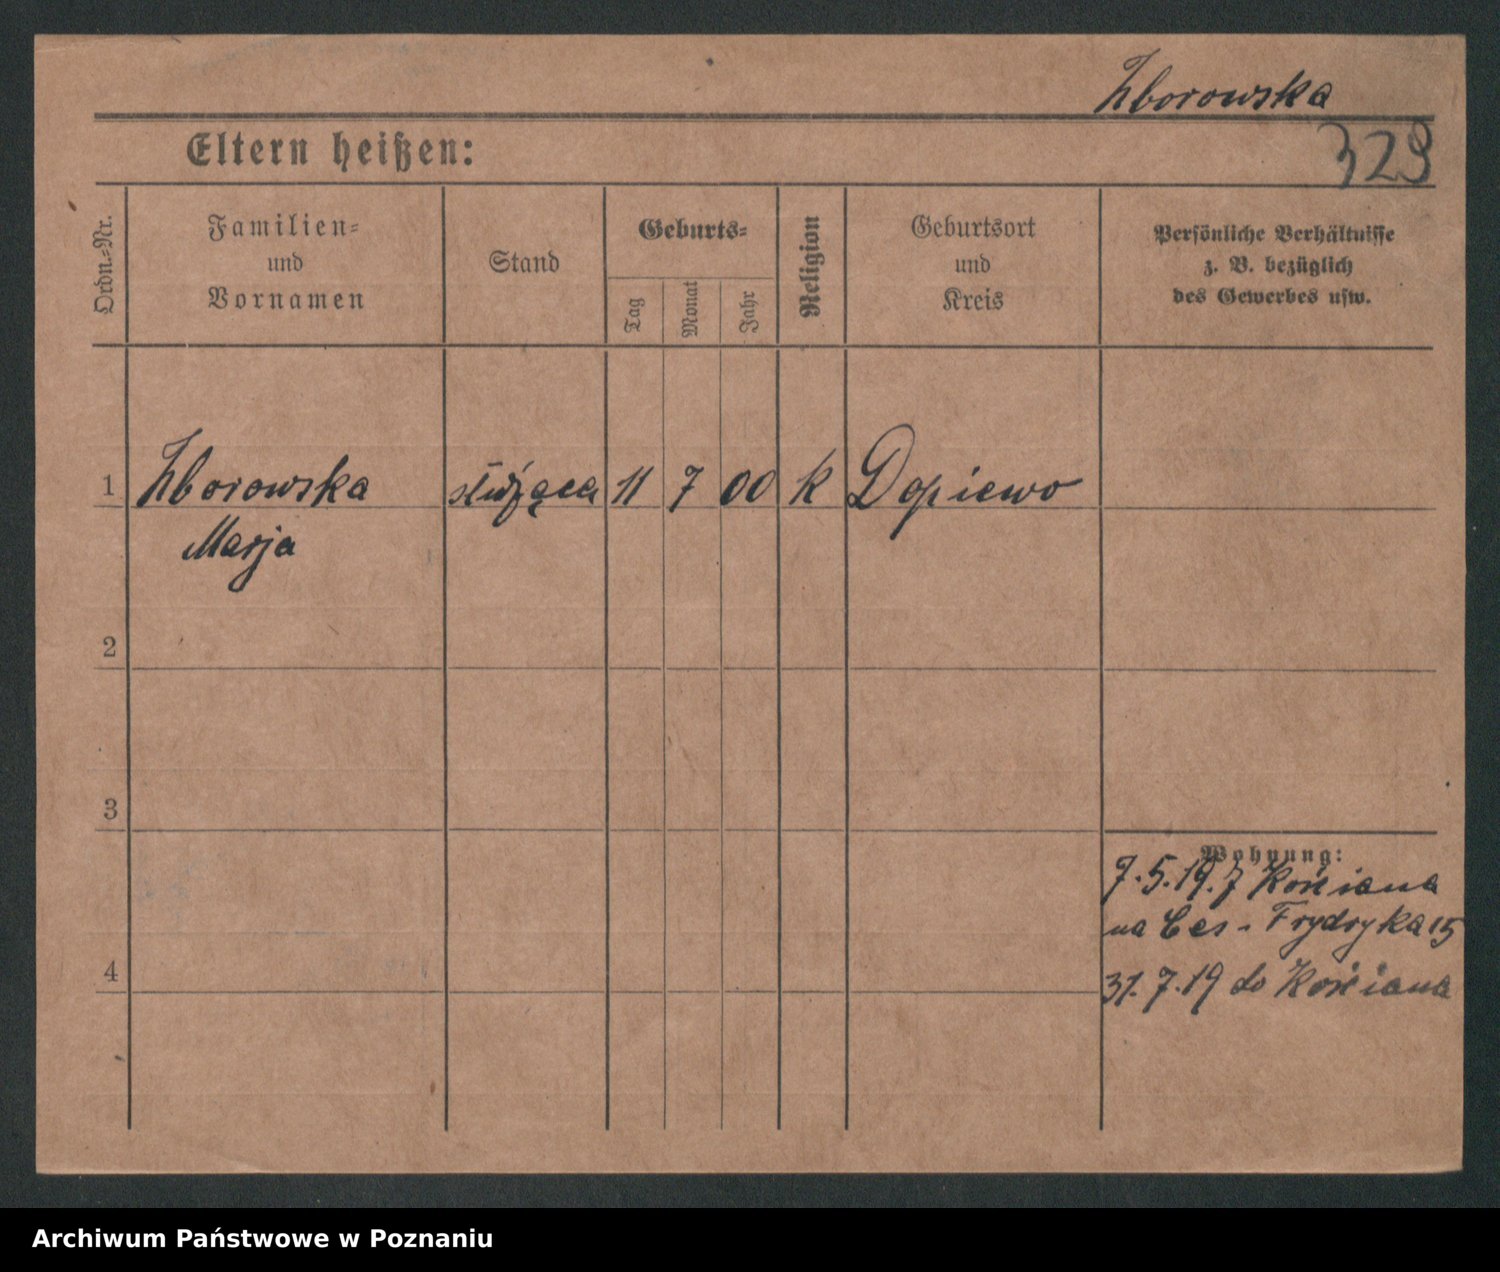 Zborowska
Eltern heißen:
329
Ordn.-Nr.
Familien-
und
Vornamen
Stand
Geburts-
Tag
Monat
Jahr
Religion
Geburtsort
und
Kreis
Persönliche Verhältnisse
z. B. bezüglich
des Gewerbes usw.
1 Zborowska służąca 11 7 00 k Dopiewo
Marja
2
3
Wohnung:
7.5.19. z Kościana
na Ces. Frydryka 15
4
31.7.19 do Kościana
Archiwum Państwowe w Poznaniu